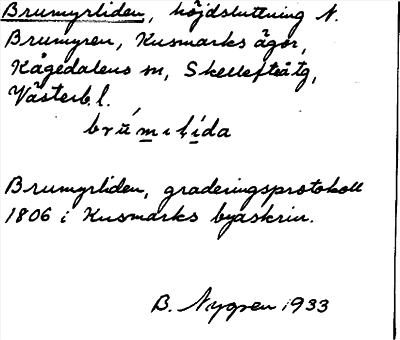 Brumyrliden, höjdsluttning N.
Brumyren, Kusmarks ägor,
Kågedalens sn, Skellefteå tg,
Västerb. l.
Brumyrliden, graderingsprotokoll
1806 i Kusmarks byaskrin.
B. Nygren 1933